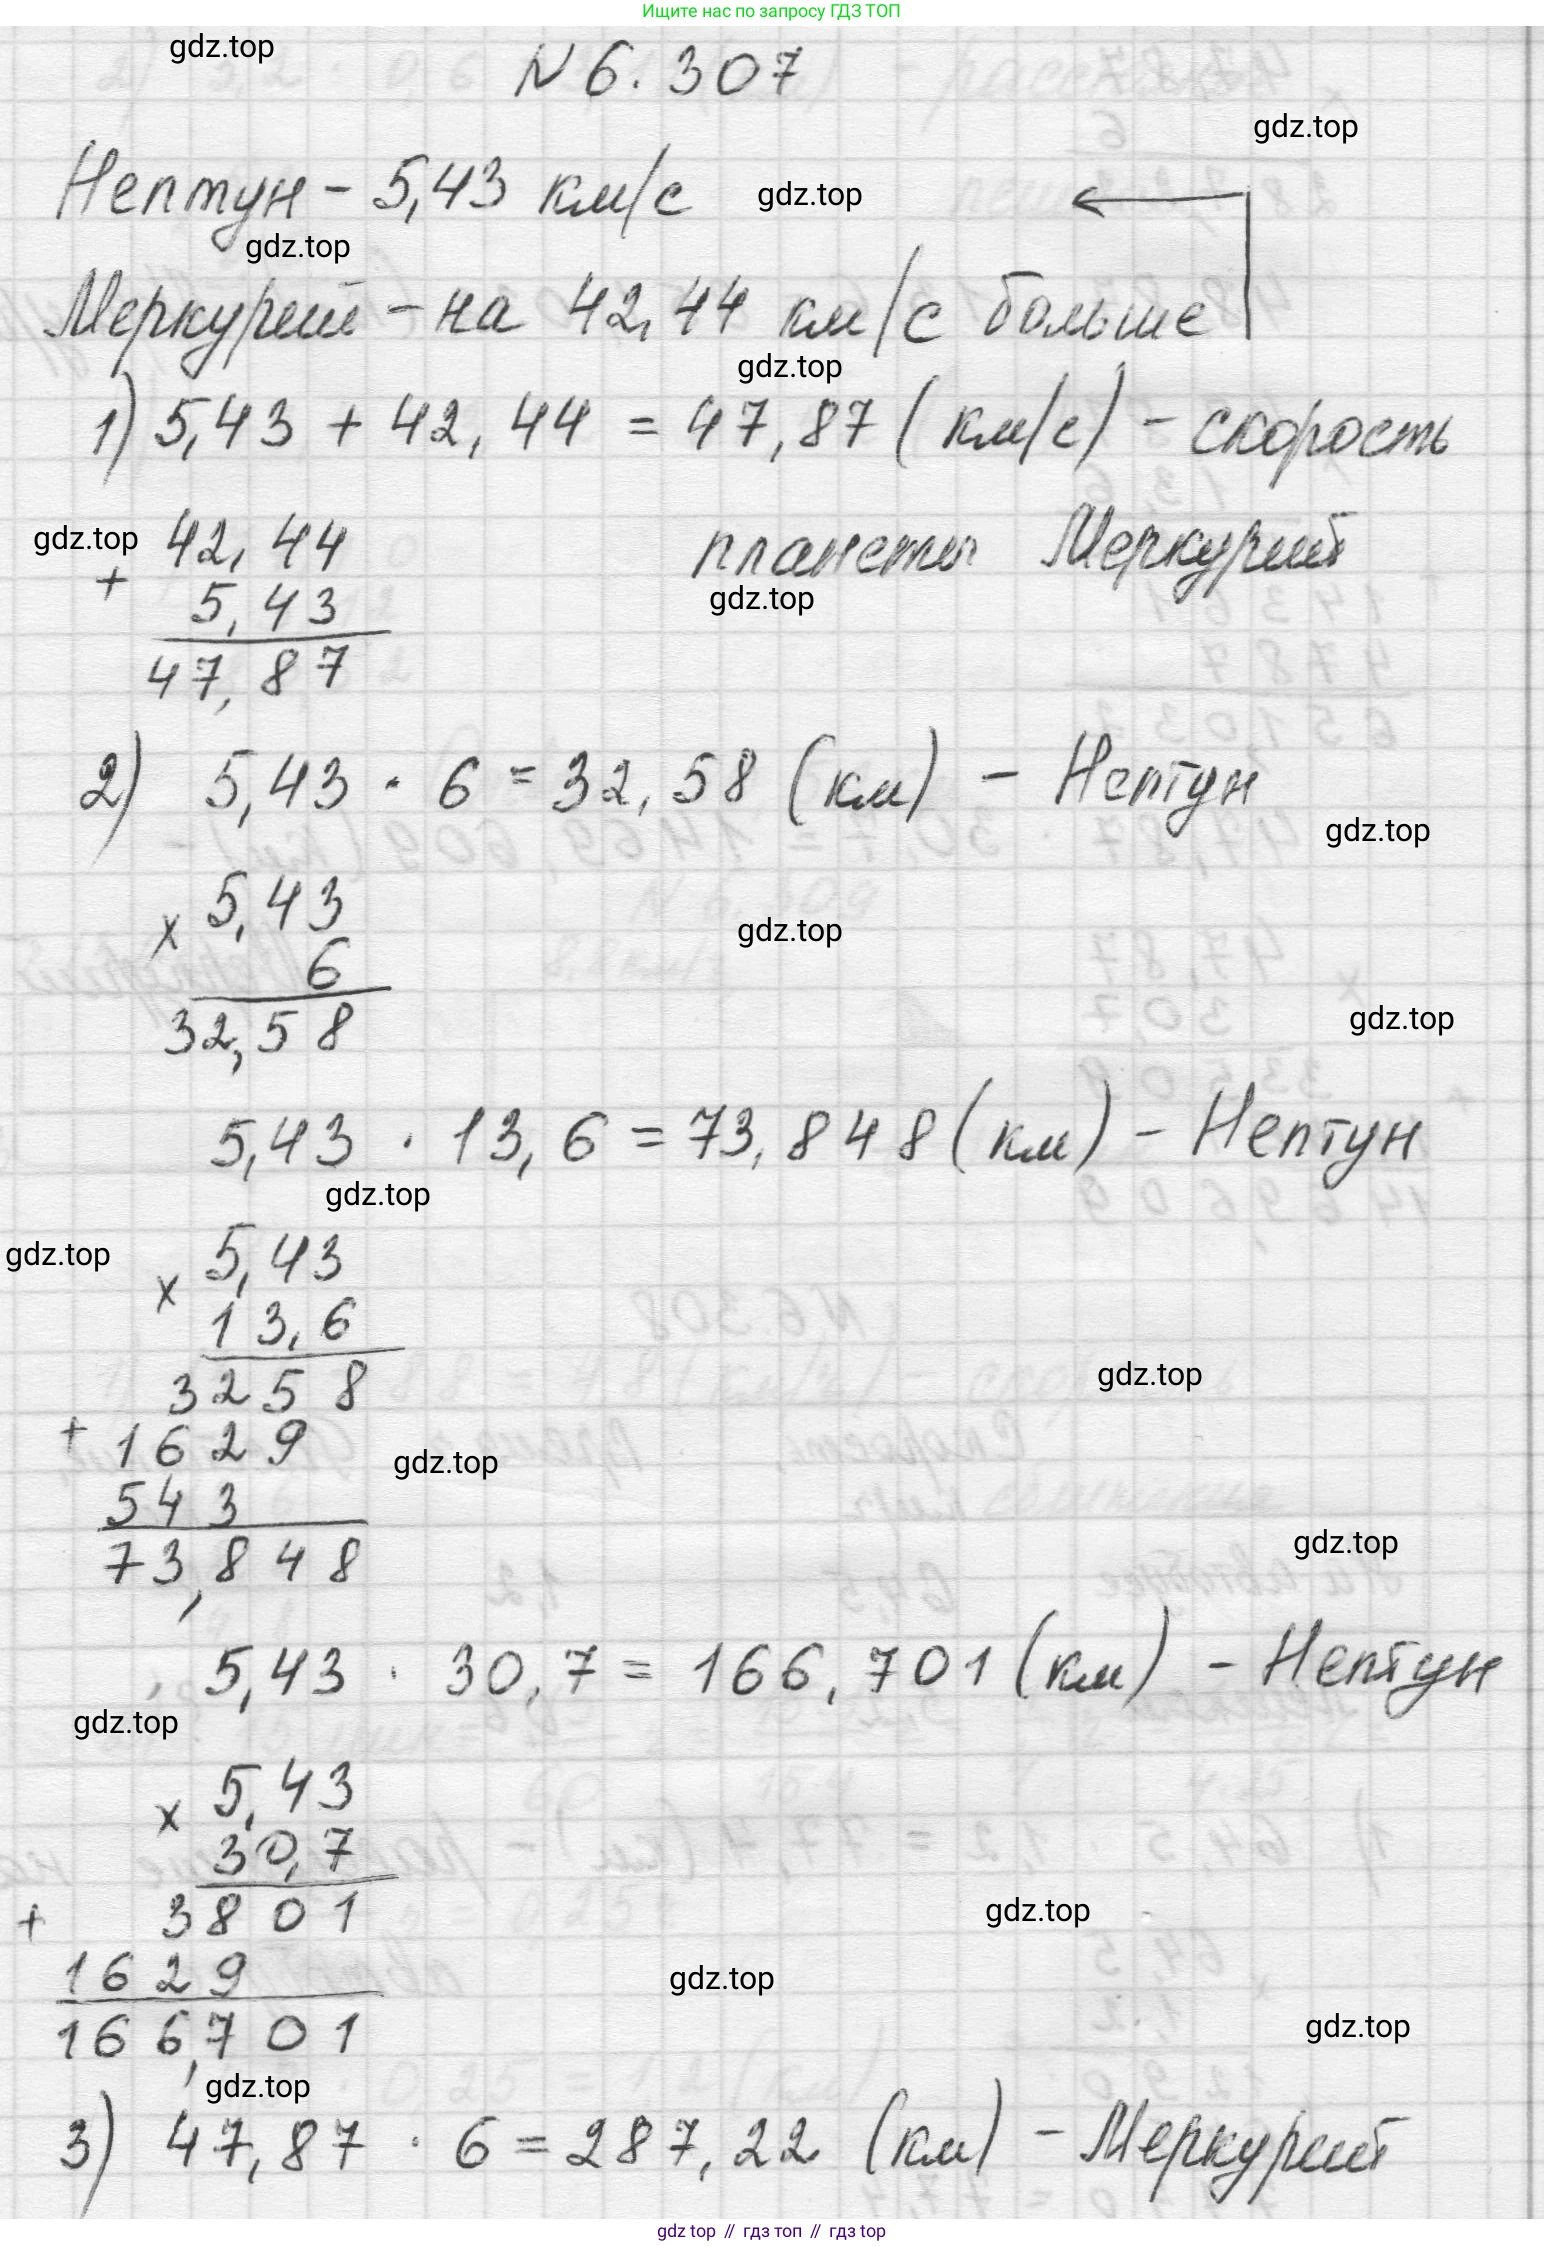 Ищите нас по запросу ГДЗ ТОП
gdz.top
N 6.307
gdz.top
Нептун - 5,43 км/с
gdz.top
gdz.top
Меркурий - на 42,44 км/с больше
gdz.top
1) 5,43 + 42,44 = 47,87 (км/с) - скорость
планеты Меркурий
gdz.top
42,44
+
5,43
gdz.top
47,87
2) 5,43 · 6 = 32,58 (км) - Нептун
gdz.top
5,43
x
gdz.top
6
32,58
gdz.top
5,43 · 13,6 = 73,848 (км) - Нептун
gdz.top
gdz.top
5,43
x
13,6
3258
gdz.top
+
1629
gdz.top
543
gdz.top
73,848
5,43 · 30,7 = 166,701 (км) - Нептун
gdz.top
5,43
x
30,7
3801
gdz.top
+
1629
gdz.top
166,701
gdz.top
gdz.top
3) 47,87 · 6 = 287,22 (км) - Меркурий
gdz top // гдз топ // gdz top